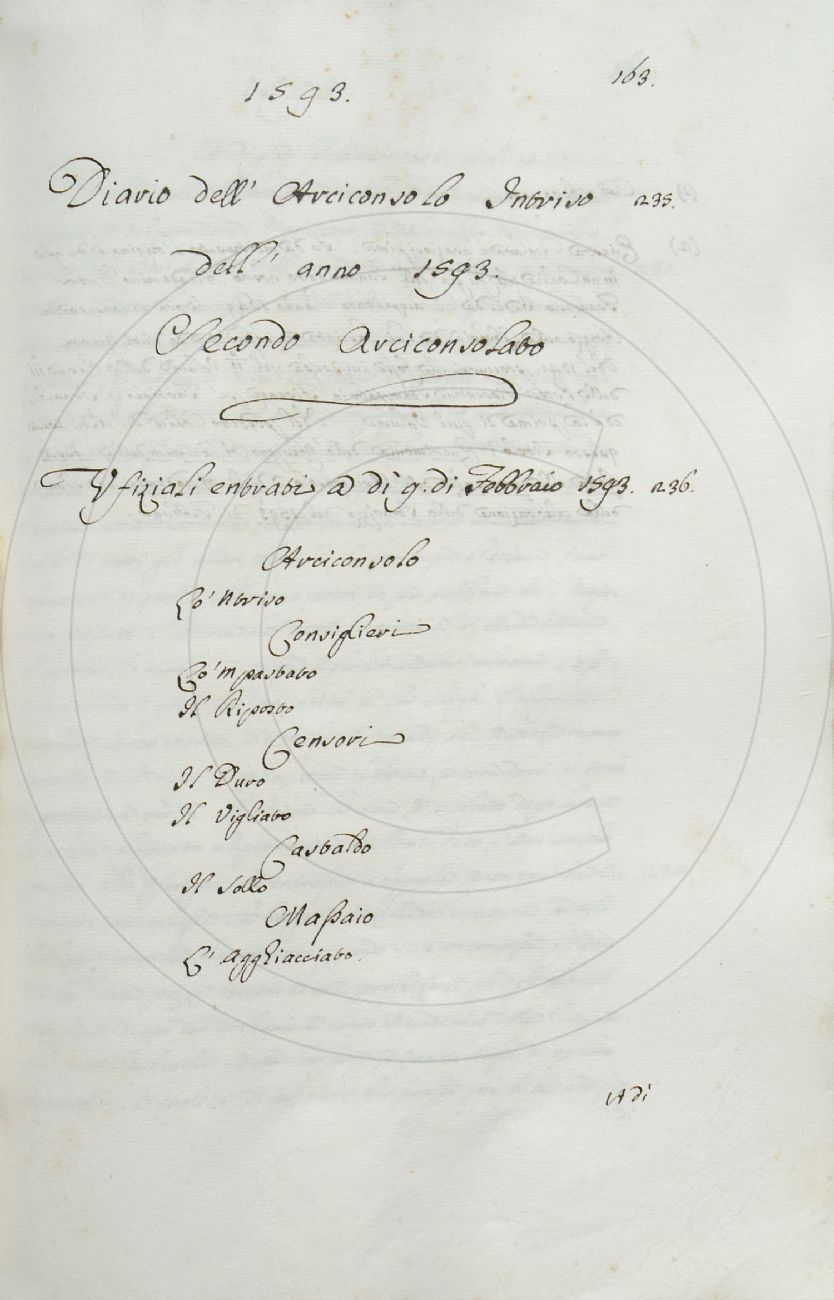 163.
1593.
Diario dell' Arciconsolo Intriso n235.
dell' anno 1593.
Secondo Arciconsolato
Vfiziali entrati a dì 9. di Febbraio 1593. n236.
Arciconsolo
Lo 'Ntriso
Consiglieri
Lo 'mpastato
Il Riposto
Censori
Il Duro
Il Vigliato
Castaldo
Il Sollo
Massaio
L' Agghiacciato.
A dì